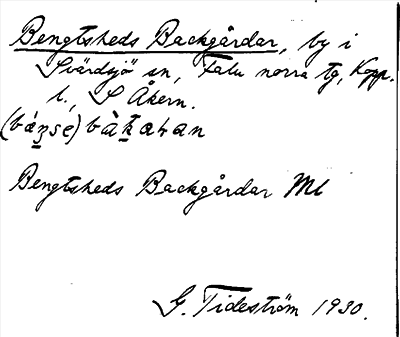 Bengtsheds Backgårdar, by i
Svärdsjö sn, Falu norra tg, Kopp.
l., S Åkern.
(bánse) bàkahan
Bengtsheds Backgårdar Ml
G. Tideström 1930.